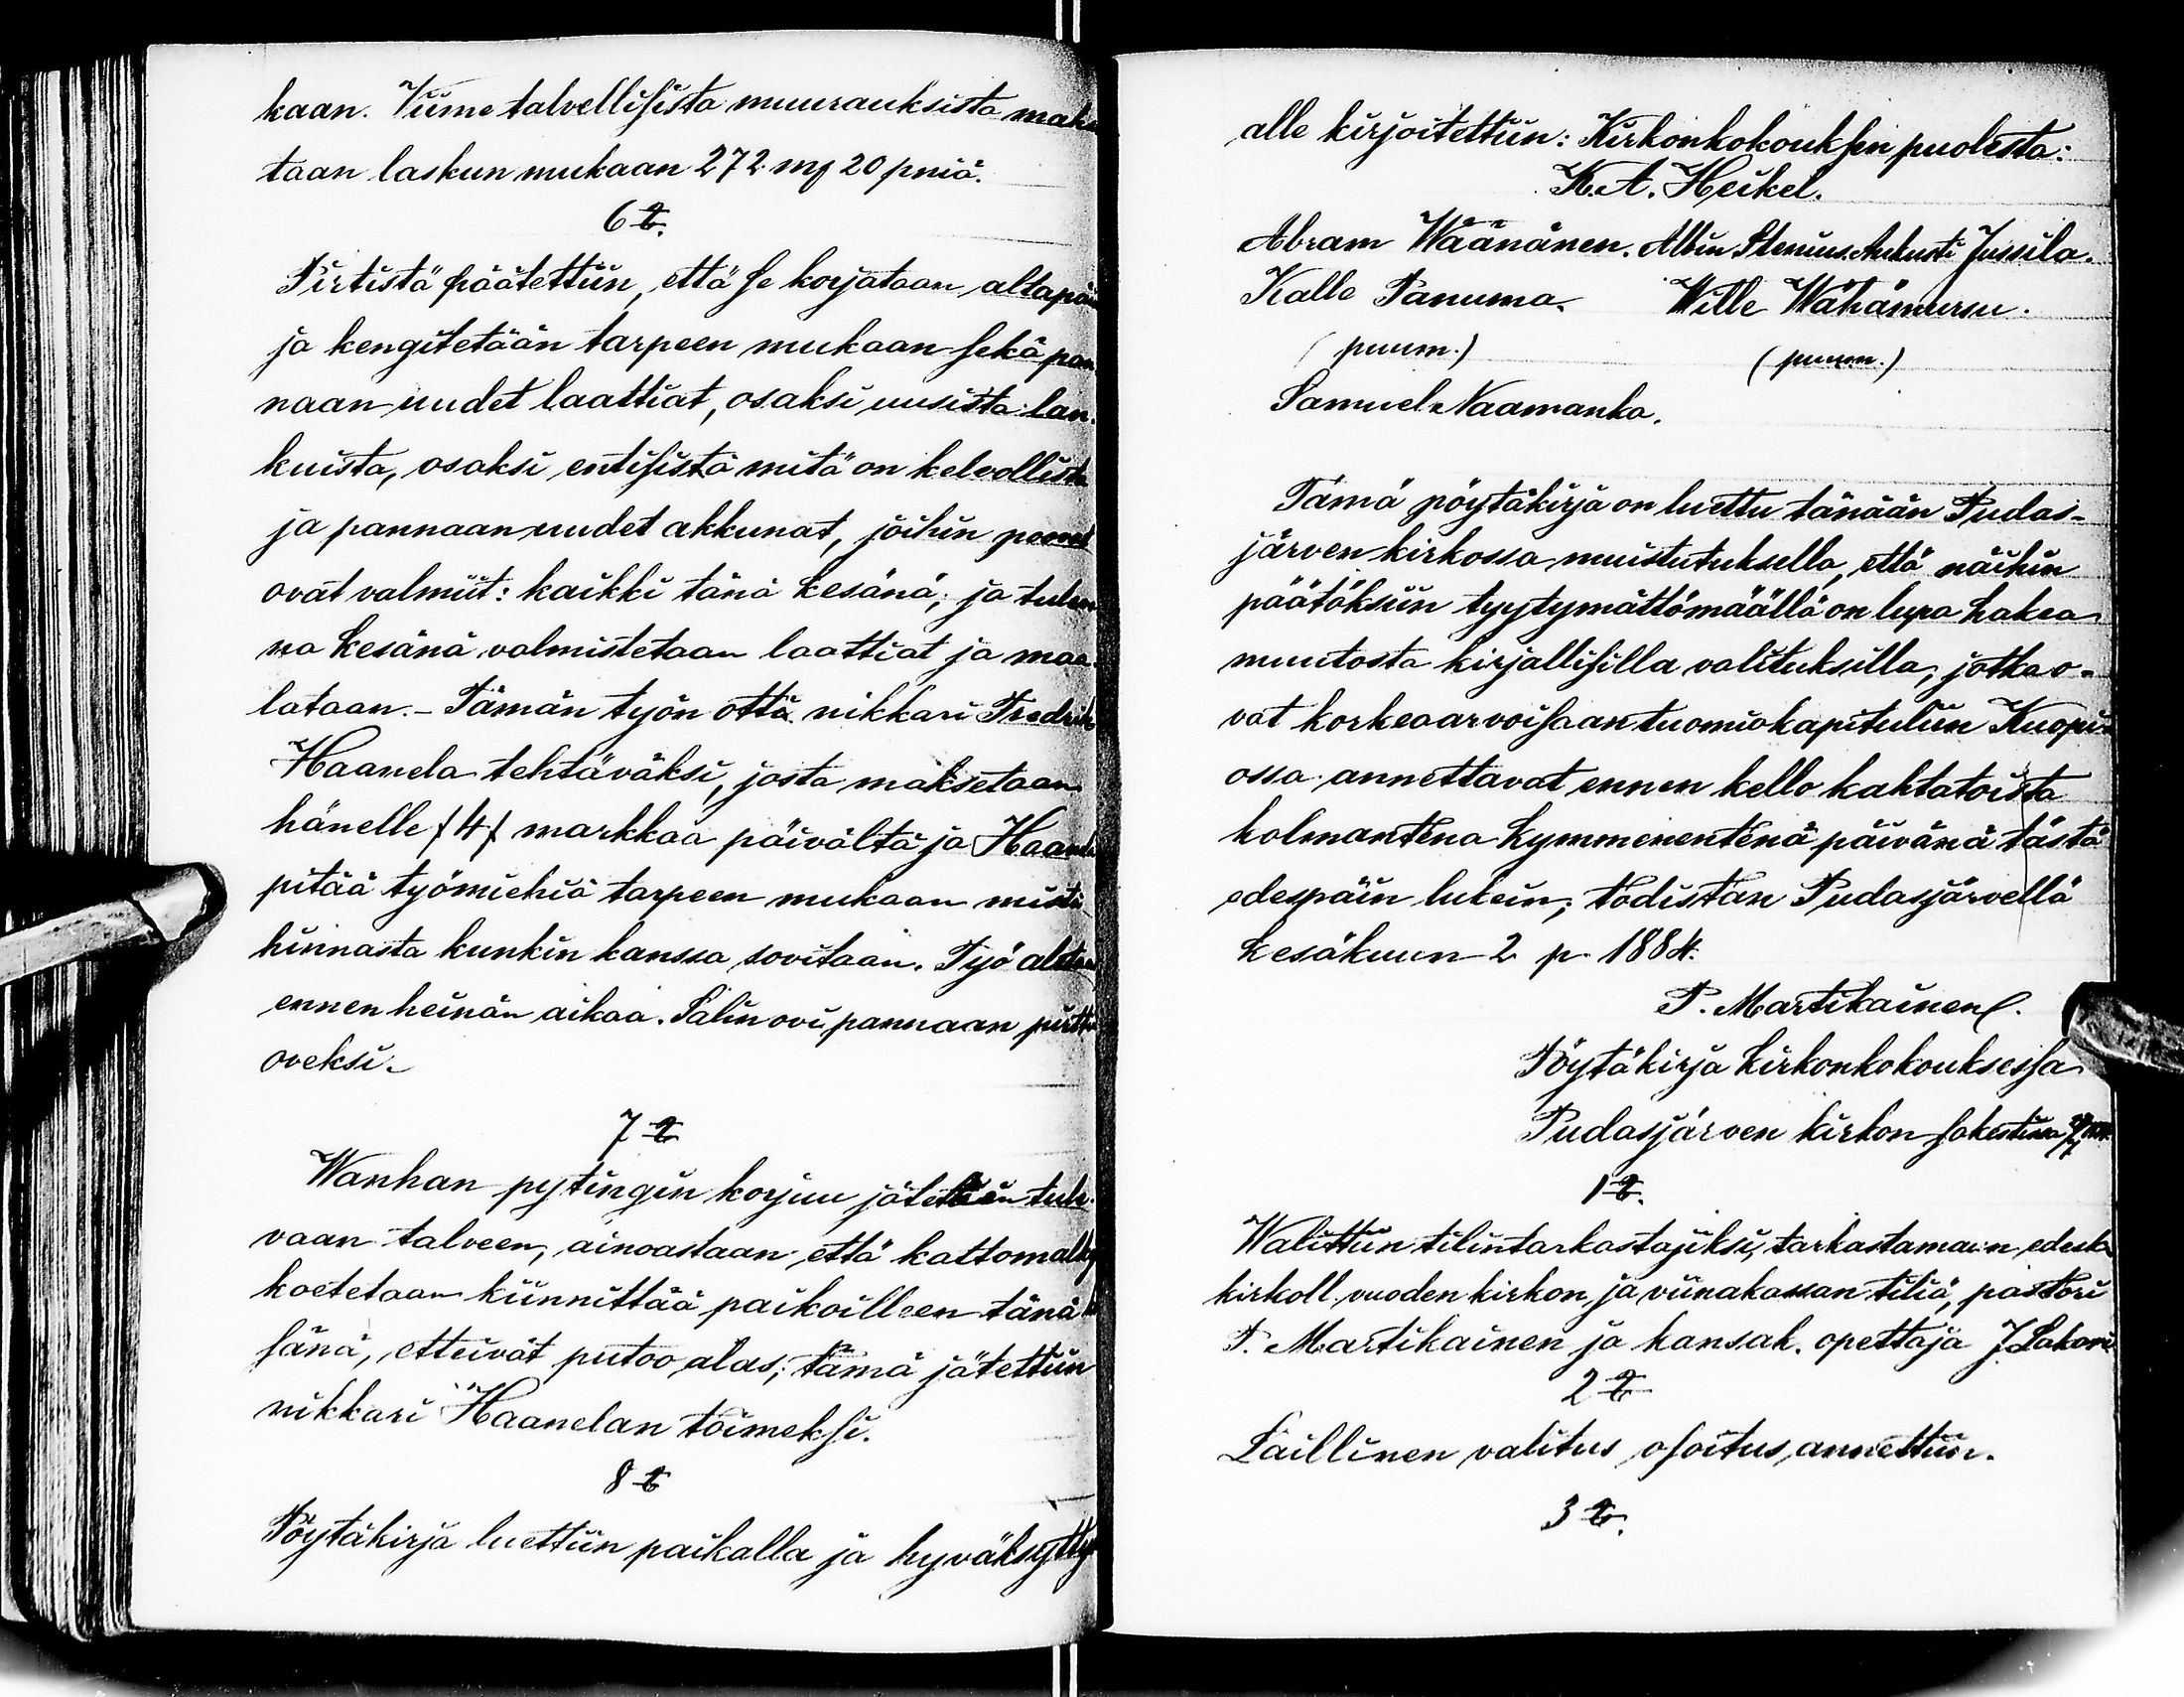 kaan. Viime talvellisista muurauksista mak
taan laskun mukaan 272 mk 20 pniä.
6 §.
Pirtistä päätettiin, että se korjataan altapäin
ja kengitetään tarpeen mukaan sekä pan
naan uudet laattiat, osaksi uusista lan
kuista, osaksi entisistä mitä on kelvollista
ja pannaan uudet akkunat, joihin
ovat valmiit: kaikki tänä kesänä; ja tulev
na kesänä valmistetaan laattiat ja maa
lataan. - Tämän työn otti nikkari Fredrik
Haanela tehtäväksi, josta maksetaan
hänelle /4/ markkaa päivältä ja Haanela
pitää työmiehiä tarpeen mukaan mistä
hinnasta kunkin kanssa sovitaan. Työ aletaan
ennen heinän aikaa. Salin ovi pannaan pirtin
oveksi.
7 §
Wanhan pytingin korjuu jätetään tule
vaan talveen, ainoastaan että kattomalk
koetetaan kiinnittää paikoilleen tänä ke
sänä, etteivät putoo alas; tämä jätettiin
nikkari Haanelan toimeksi.
8 §
Pöytäkirja luettiin paikalla ja hyväksytty
alle kirjoitettiin: Kirkonkokouksen puolesta:
K. A. Heikel.
Abram Wäänänen. Albin Stenius. Aukusti Jussila.
Kalle Panuma. Wille Wähämursu.
(puum.) (puum.)
Samuel Naamanka.
Tämä pöytäkirja on luettu tänään Pudas-
järven kirkossa muistutuksella, että näihin
päätöksiin tyytymättömäällä on lupa hakea
muutosta kirjallisilla valituksilla, jotka o-
vat korkeaarvoisaan tuomiokapituliin Kuopi-
ossa annettavat ennen kello kahtatoista
kolmantena kymmenentenä päivänä tästä
edespäin lukein; todistan Pudasjärvellä
kesäkuun 2 p. 1884.
P. Martikainen.
Pöytäkirja kirkonkokouksessa
Pudasjärven kirkon sakestissa
1 §.
Walittiin tilintarkastajiksi, tarkastamaan edesk
kirkoll. vuoden kirkon ja viinakassan tiliä, pastori
P. Martikainen ja kansak. opettaja J. Lakari
2 §
Laillinen valitus osoitus annettiin.
3 §.